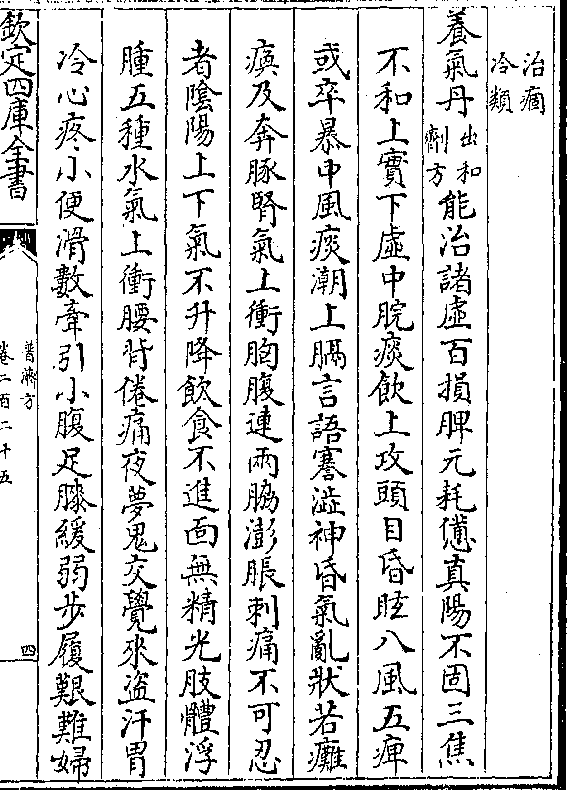 治痼
冷類
養氣丹出和劑方能治諸虛百損脾元耗憊真陽不固三焦
不和上實下虛中脘痰飲上攻頭目昏眩八風五痺
或卒暴中風痰潮上膈言語蹇澁神昏氣亂狀若癱
瘓及奔豚腎氣上衝胸腹連兩脇膨脹刺痛不可忍
者陰陽上下氣不升降飲食不進面無精光肢體浮
腫五種水氣上衝腰背倦痛夜夢鬼交覺來盜汗胃
冷心疼小便滑數牽引小腹足膝緩弱步履艱難婦
欽定四庫全書
普濟方
卷二百二十五
四